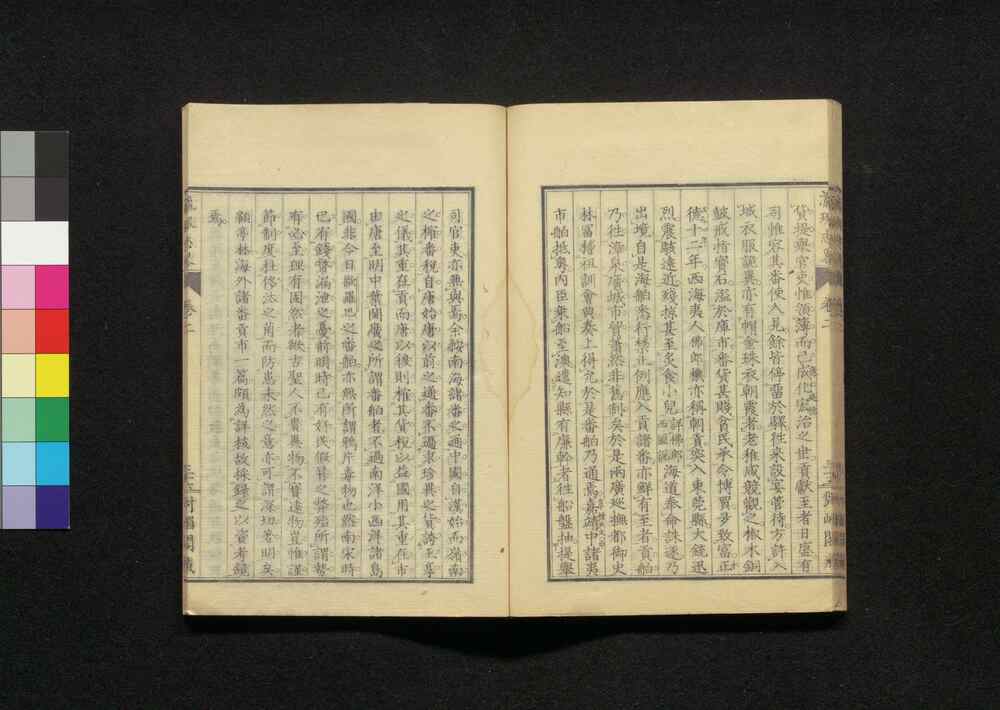 貨提舉官吏惟領簿而已成化弘治之世貢獻至者日盛有
司惟容其番使入見餘皆停留於驛往來設宴管待方許入
城衣服詭異亦有帽金珠衣朝霞者老稚咸競觀之椒木銅
鼓戒指寶石溢於庫市番貨甚賤貧民承令博買多致富正
德十二年西海夷人佛郎機亦稱朝貢突入東莞縣大銃迅
烈震駭遠近殘掠甚至炙食小兒海道奉命誅逐乃
出境自是海舶悉行禁止例應入貢諸番亦鮮有至者貢舶
乃往漳泉廣城市貿蕭然非舊制矣於是兩廣巡撫都御史
林富稽祖訓會典奏上得允於是番舶乃通焉嘉靖中諸夷
市舶抵粵內臣乘船至澳遣知縣有廉幹者往船盤抽提舉
司官吏亦無與焉余按南海諸番之通中國自漢始而嶺南
之榷番稅自唐始唐以前之通番不過來珍異之貨誇王享
之儀其重在貢而唐以後則榷其貨稅以益國用其重在市
由唐至明中葉閩廣之所謂番舶者不過南洋小西洋諸島
國非今日歐羅巴之番舶亦無所謂鴉片毒物也然南宋時
已有錢幣漏泄之憂前明時已有奸民假冒之弊殆所謂勢
有必至理有固然者歟古聖人不貴異物不寶遠物豈惟謹
節制度杜侈汰之萌而防患未然之意亦可謂深切著明矣
顧亭林海外諸番貢市一篇頗為詳核故採錄之以資考鏡
焉
卷二